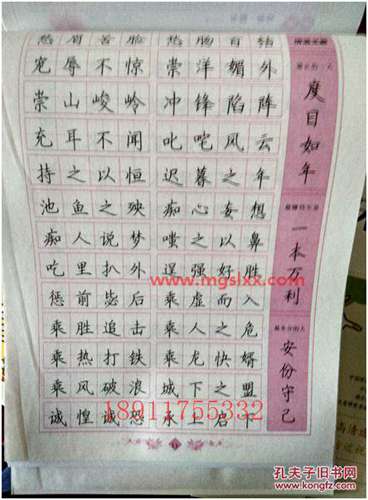 愁眉苦脸 热肠百结
宠辱不惊 崇洋媚外
崇山峻岭 冲锋陷阵
充耳不闻 叱咤风云
持之以恒 迟暮之年
池鱼之殃 痴心妄想
痴人说梦 嗤之以鼻
吃里扒外 逞强好胜
惩前毖后 乘虚而入
乘胜追击 乘人之危
乘热打铁 乘龙快婿
乘风破浪 城下之盟
诚惶诚恐 承上启下
度日如年
一本万利
安份守己
www.mgslxx.com
18911755332
孔夫子旧书网